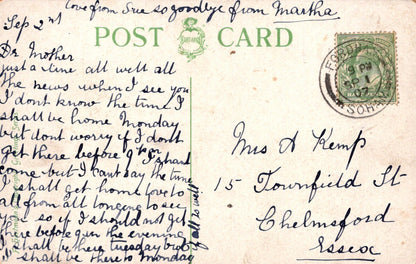 love from Sue so goodbye from Martha
Sep 2nd
POST CARD
Dr Mother
just a line all well all
the news when I see you
I dont know the time I
shall be home Monday
but dont worry if I dont
get there before 9 for I shant
come but I cant say the time
I shall get home love to
all from all longing to see
you so if I should not get
there before 9 in the evening
I shall be there tuesday but
I shall be there to monday
if all is well
Mrs A Kemp
15 Townfield St
Chelmsford
Essex